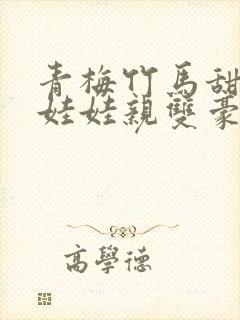 青梅竹馬甜
娃娃親雙豪
高學德